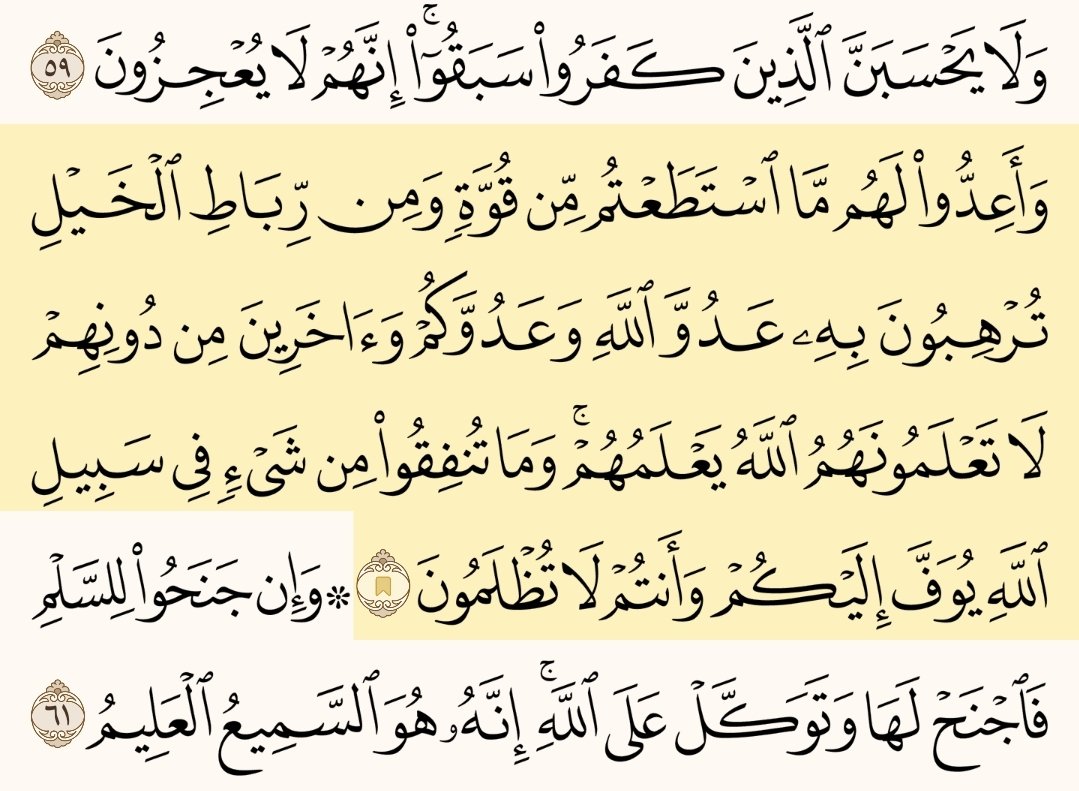 وَلَا يَحۡسَبَنَّ ٱلَّذِينَ كَفَرُواْ سَبَقُوٓاْۚ إِنَّهُمۡ لَا يُعۡجِزُونَ ٥٩
وَأَعِدُّواْ لَهُم مَّا ٱسۡتَطَعۡتُم مِّن قُوَّةٖ وَمِن رِّبَاطِ ٱلۡخَيۡلِ
تُرۡهِبُونَ بِهِۦ عَدُوَّ ٱللَّهِ وَعَدُوَّكُمۡ وَءَاخَرِينَ مِن دُونِهِمۡ
لَا تَعۡلَمُونَهُمُ ٱللَّهُ يَعۡلَمُهُمۡۚ وَمَا تُنفِقُواْ مِن شَيۡءٖ فِي سَبِيلِ
ٱللَّهِ يُوَفَّ إِلَيۡكُمۡ وَأَنتُمۡ لَا تُظۡلَمُونَ ۞ وَإِن جَنَحُواْ لِلسَّلۡمِ
فَٱجۡنَحۡ لَهَا وَتَوَكَّلۡ عَلَى ٱللَّهِۚ إِنَّهُۥ هُوَ ٱلسَّمِيعُ ٱلۡعَلِيمُ ٦١